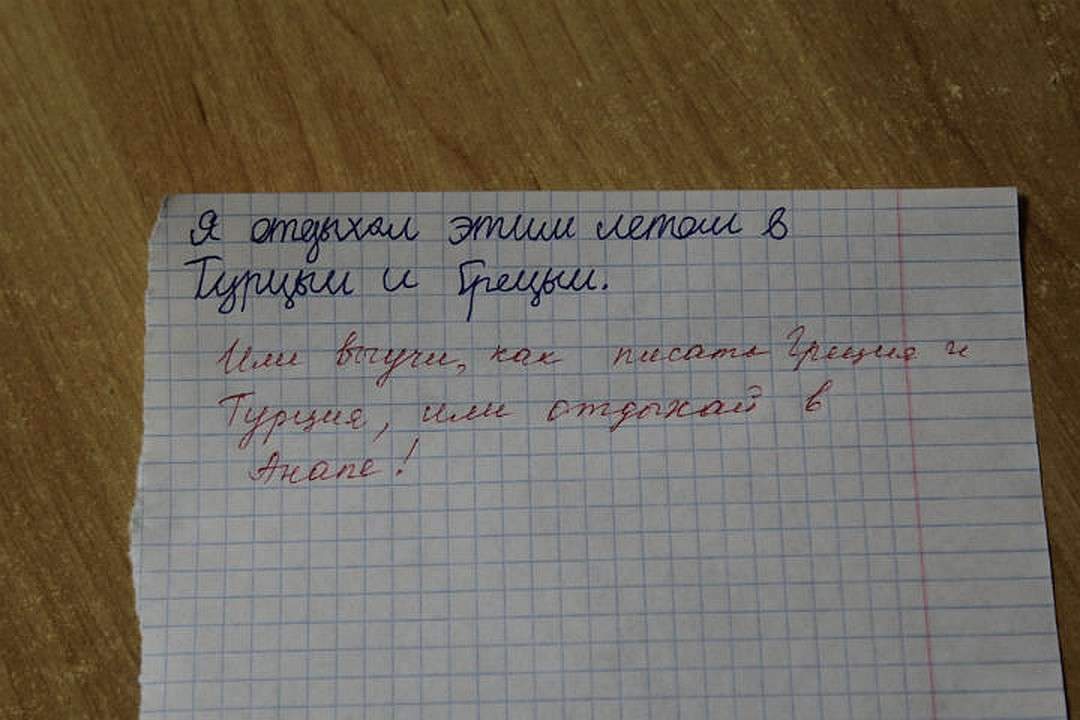 Я отдыхал этим летом в
Турцыи и Грецыи.
Или выучи, как писать Греция и
Турция, или отдыхай в
Анапе!